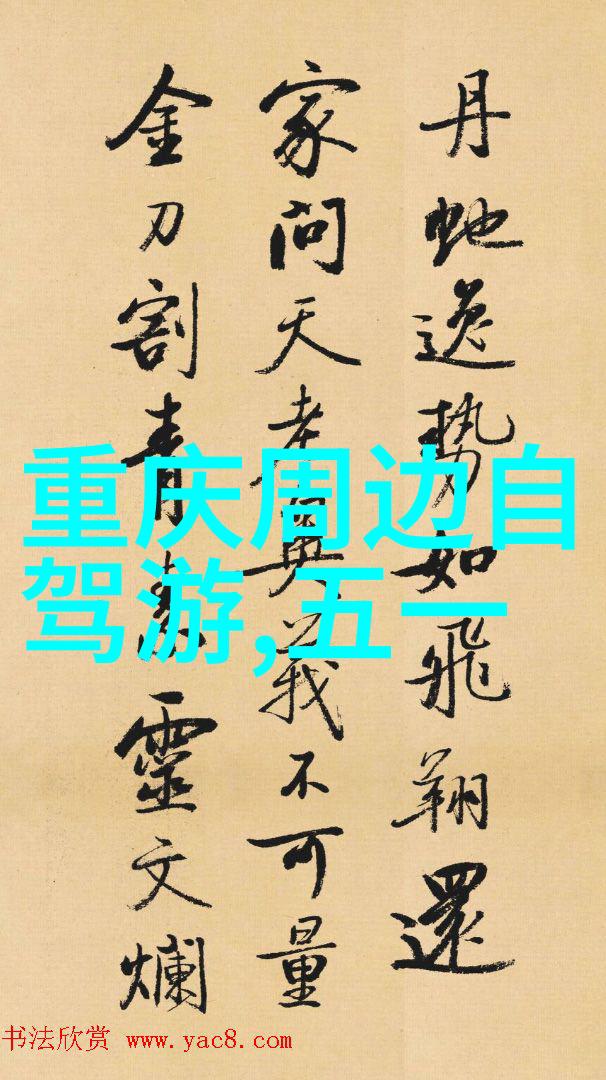 丹虵逸勢如飛翔還
家問天老奧義不可量
金刀割青素靈文爛
重庆周边自
驾游,五一
书法欣赏 www.yac8.com